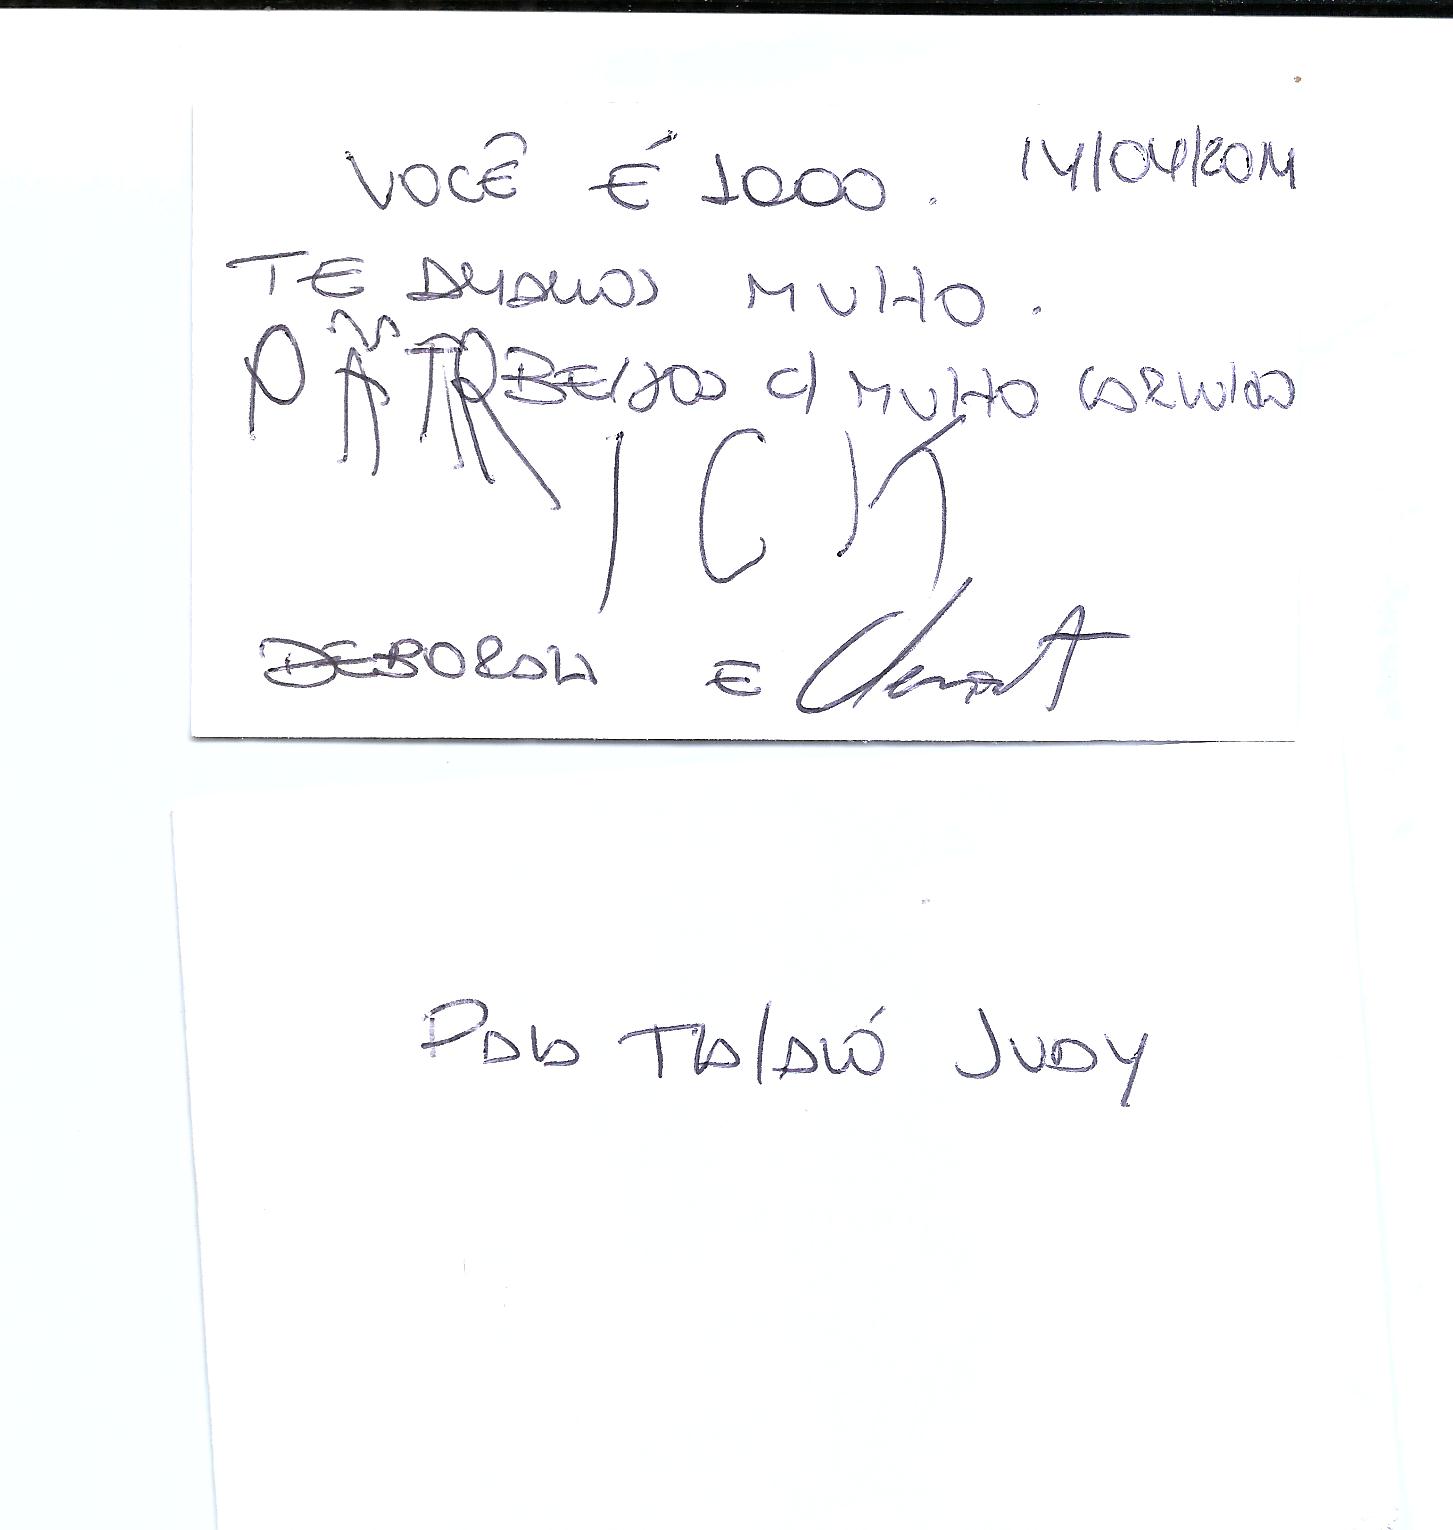 VOCÊ É 1000. 14/04/2011
TE AMAMOS MUITO.
BEIJOS C/ MUITO CARINHO
PATRICK
DEBORAH E
PARA TIA/AVÓ JUDY